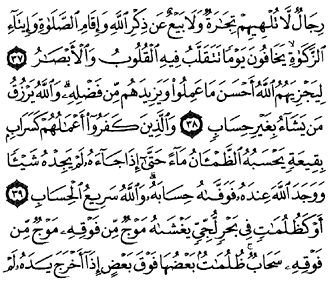 رِجَالٌ لَّا تُلْهِيهِمْ تِجَٰرَةٌ وَلَا بَيْعٌ عَن ذِكْرِ ٱللَّهِ وَإِقَامِ ٱلصَّلَوٰةِ وَإِيتَآءِ
ٱلزَّكَوٰةِ يَخَافُونَ يَوْمًا تَتَقَلَّبُ فِيهِ ٱلْقُلُوبُ وَٱلْأَبْصَٰرُ ٣٧
لِيَجْزِيَهُمُ ٱللَّهُ أَحْسَنَ مَا عَمِلُوا۟ وَيَزِيدَهُم مِّن فَضْلِهِۦ وَٱللَّهُ يَرْزُقُ
مَن يَشَآءُ بِغَيْرِ حِسَابٍ ٣٨ وَٱلَّذِينَ كَفَرُوٓا۟ أَعْمَٰلُهُمْ كَسَرَابٍۭ
بِقِيعَةٍ يَحْسَبُهُ ٱلظَّمْـَٔانُ مَآءً حَتَّىٰٓ إِذَا جَآءَهُۥ لَمْ يَجِدْهُ شَيْـًٔا
وَوَجَدَ ٱللَّهَ عِندَهُۥ فَوَفَّىٰهُ حِسَابَهُۥ وَٱللَّهُ سَرِيعُ ٱلْحِسَابِ ٣٩
أَوْ كَظُلُمَٰتٍ فِى بَحْرٍ لُّجِّىٍّ يَغْشَىٰهُ مَوْجٌ مِّن فَوْقِهِۦ مَوْجٌ مِّن
فَوْقِهِۦ سَحَابٌ ظُلُمَٰتٌۢ بَعْضُهَا فَوْقَ بَعْضٍ إِذَآ أَخْرَجَ يَدَهُۥ لَمْ